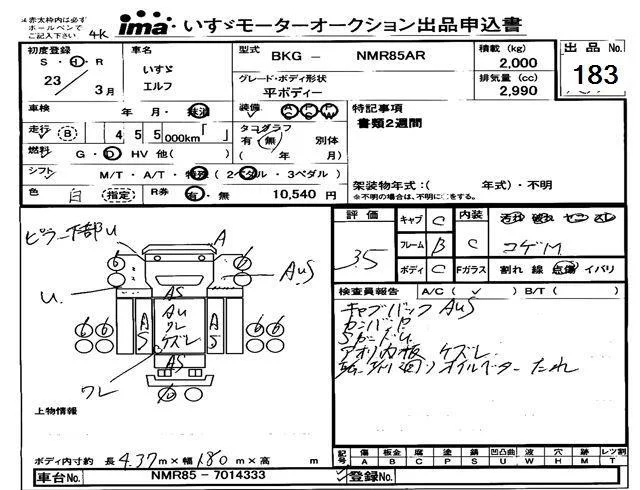 赤太枠内は必ず
ボールペンで
ご記入下さい。 4K
ima いすゞモーターオークション出品申込書
初度登録 車名 型式 BKG － NMR85AR 積載 (kg) 2,000 出品 No. 183
S・H・R
23 / 3月
いすゞ
エルフ
グレード・ボディ形状
平ボディー
排気量 (cc)
2,990
車検 年 月・抹消 装備 AC PS PW 特記事項
書類2週間
走行 B 455 000km「 」 タコグラフ
有・無 別体
( 年 月)
燃料 G・D HV 他( )
シフト M/T・A/T・特殊(2ペダル・3ペダル)
色 白 指定 R券 有・無 10,540 円
架装物年式:( 年式)・不明
※不明の場合は、不明に○をする。
評価 3.5
キャブ C 内装
フレーム B C コゲM
ボディ C Fガラス 割れ 線 点傷 イバリ
検査員報告 A/C( ✓ ) B/T( )
キャブバック AuS
アオリ内板 ケズレ
ピラー下部U
A
AuS
U
AS
Au
ワレ
ケズレ
AS
AS
AS
ワレ
上物情報
ボディ内寸約 長 4.37 m×幅 1.80 m×高 m
記号 傷 A 板金 B 腐 C 塗 P 錆 S 凹凸曲 U 波 W 穴 H 跡 M レツ割 T
車台No. NMR85 － 7014333 登録No.